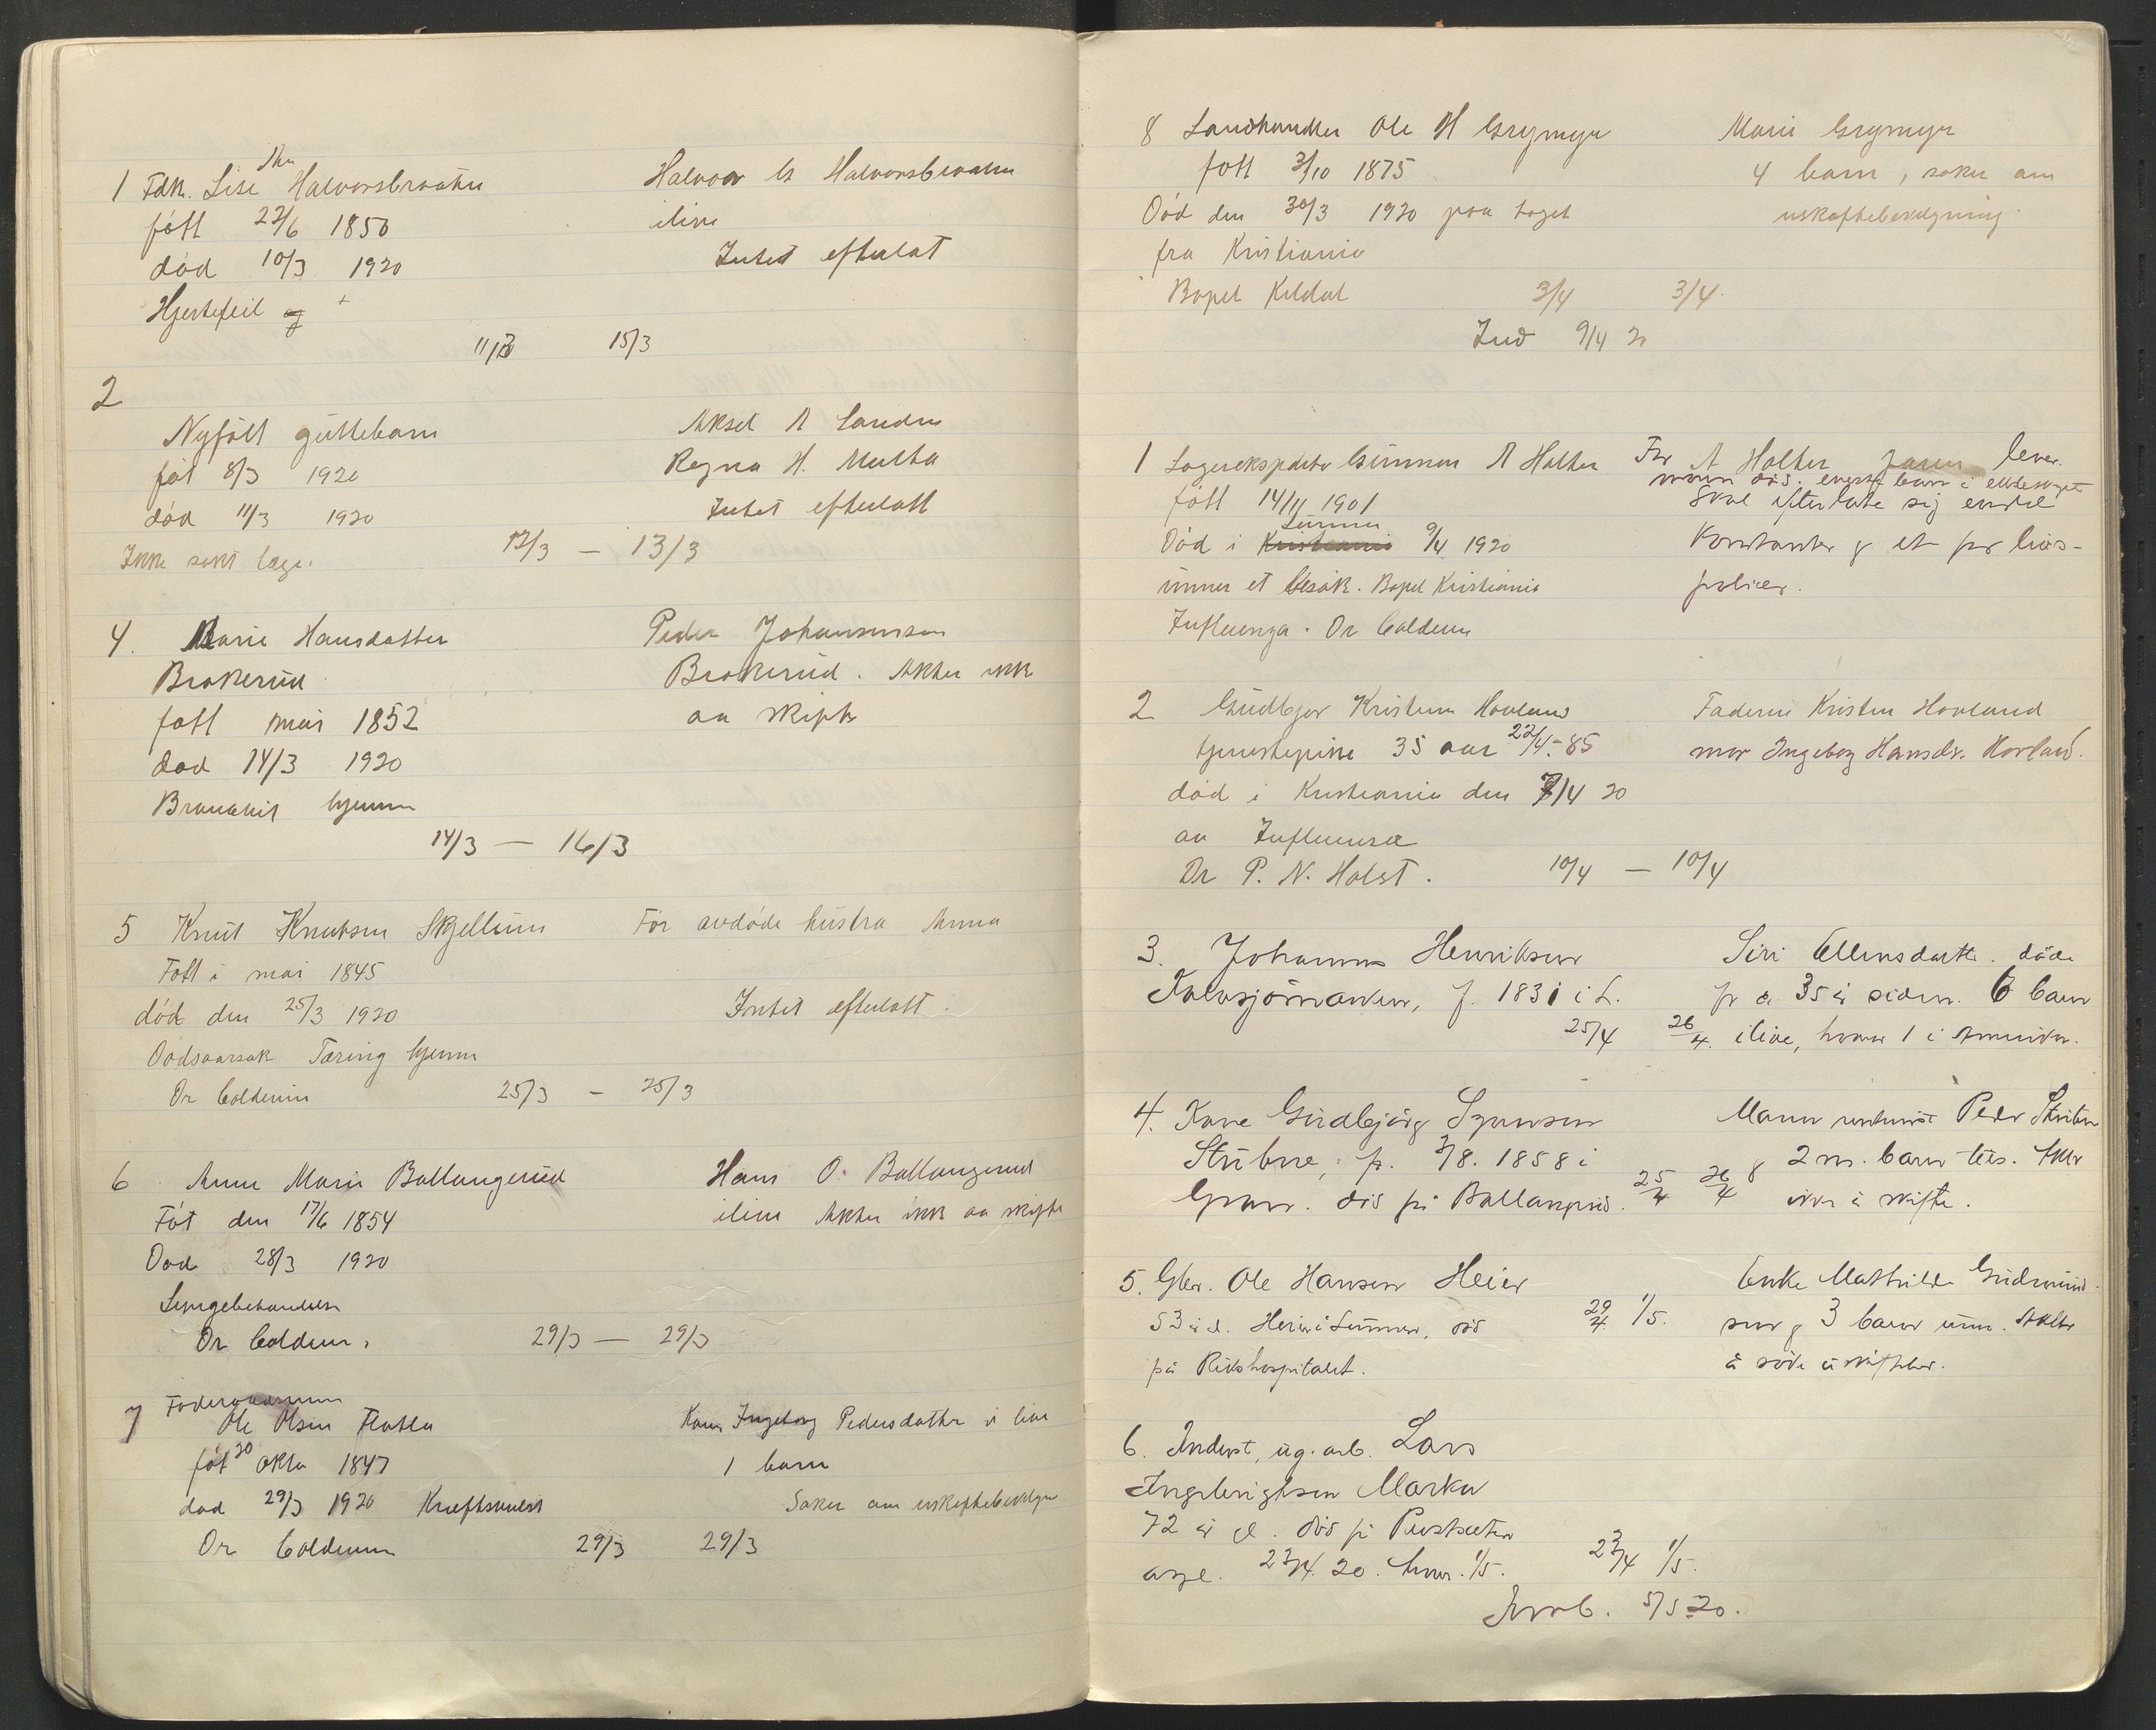 1 Fdk. Lise Halvorsbraaten
født 22/6 1850
død 10/3 1920
Hjertefeil
11/3 15/3
Halvor G Halvorsbraaten
ilive
Intet efterlat
2
Nyfødt guttebarn
føt 8/3 1920
død 11/3 1920
Ikke søkt læge.
12/3 — 13/3
Aksel A Sanden
Ragna H.
Intet efterlatt
4. Marie Hansdatter
Brakerud
født mai 1852
død 14/3 1920
hjemme
14/3 — 16/3
Peder Johannessen
Brakerud. Akter ikke
aa skifte
5 Knut Knutsen Skjellum
Født i mai 1845
død den 25/3 1920
Dødsaarsak Tæring hjemme
Dr Coldevin
25/3 - 25/3
Før avdøde hustru Anna
Intet efterlatt.
6 Anne Marie Ballangerud
Føt den 17/6 1854
Død 28/3 1920
Lungebetændelse
Dr Coldevin.
29/3 — 29/3
Hans O. Ballangerud
ilive Akter ikke aa skifte
7 Føderaadsmann
Ole Olsen Flatla
føt 20 okto 1847
død 29/3 1920 Kræftsvulst
Dr Coldevin
29/3 29/3
Kone Ingeborg Pedersdatter i live
1 barn
Søker om uskiftebevilgn
8 Landhandler Ole H Grymyr
født 3/10 1875
Død den 30/3 1920 paa toget
fra Kristiania
Bopel Kildal
3/4 3/4.
Ind 9/4 20
Marie Grymyr
4 barn, søker om
uskiftebevilgning.
1 Lagerekspeditør Gunnar A Holter
født 14/11 1901
Lunner
Død i Kristiania 9/4 1920
under et besøk. Bopel Kristiania
Influenza. Dr Coldevin
Far A Holter faren lever.
moren død. eneste barn i ekteskapet
Skal efterlate sig endel
Kontanter & et par livs-
policer.
2 Gudbjør Kristine Hovland
tjenestepike 35 aar 22/4-85
død i Kristiania den 7/4 20
av Influensa
Dr P. N. Holst.
10/4 — 10/4
Faderen Kristen Hovland
mor Ingeborg Hansdr. Hovland.
3. Johannes Henriksen
Kalvsjømarken, f. 1831 i L.
25/4 26/4
Siri Ellensdatter. døde
for ca. 35 å siden. 6 barn
ilive, hvorav 1 i Amerika.
4. Kone Gudbjørg
Stubne, f. 3/8. 1858 i
Gran. død på Ballangrud.
25/4 26/4
Mann Peder Stubne
2 m. barn tils. Akter
ikke å skifte.
5. Gbr. Ole Hansen Heier
53 å gl. Heier i Lunner, død
på Rikshospitalet.
29/4 1/5.
Enke Mathilde Gudmund-
sen & 3 barn
6. Inderst, ug. arb. Lars
Ingebrigtsen Marka
72 å gl. død på
23/4 20. 1/5.
23/4 1/5.
Innb. 5/5 20.